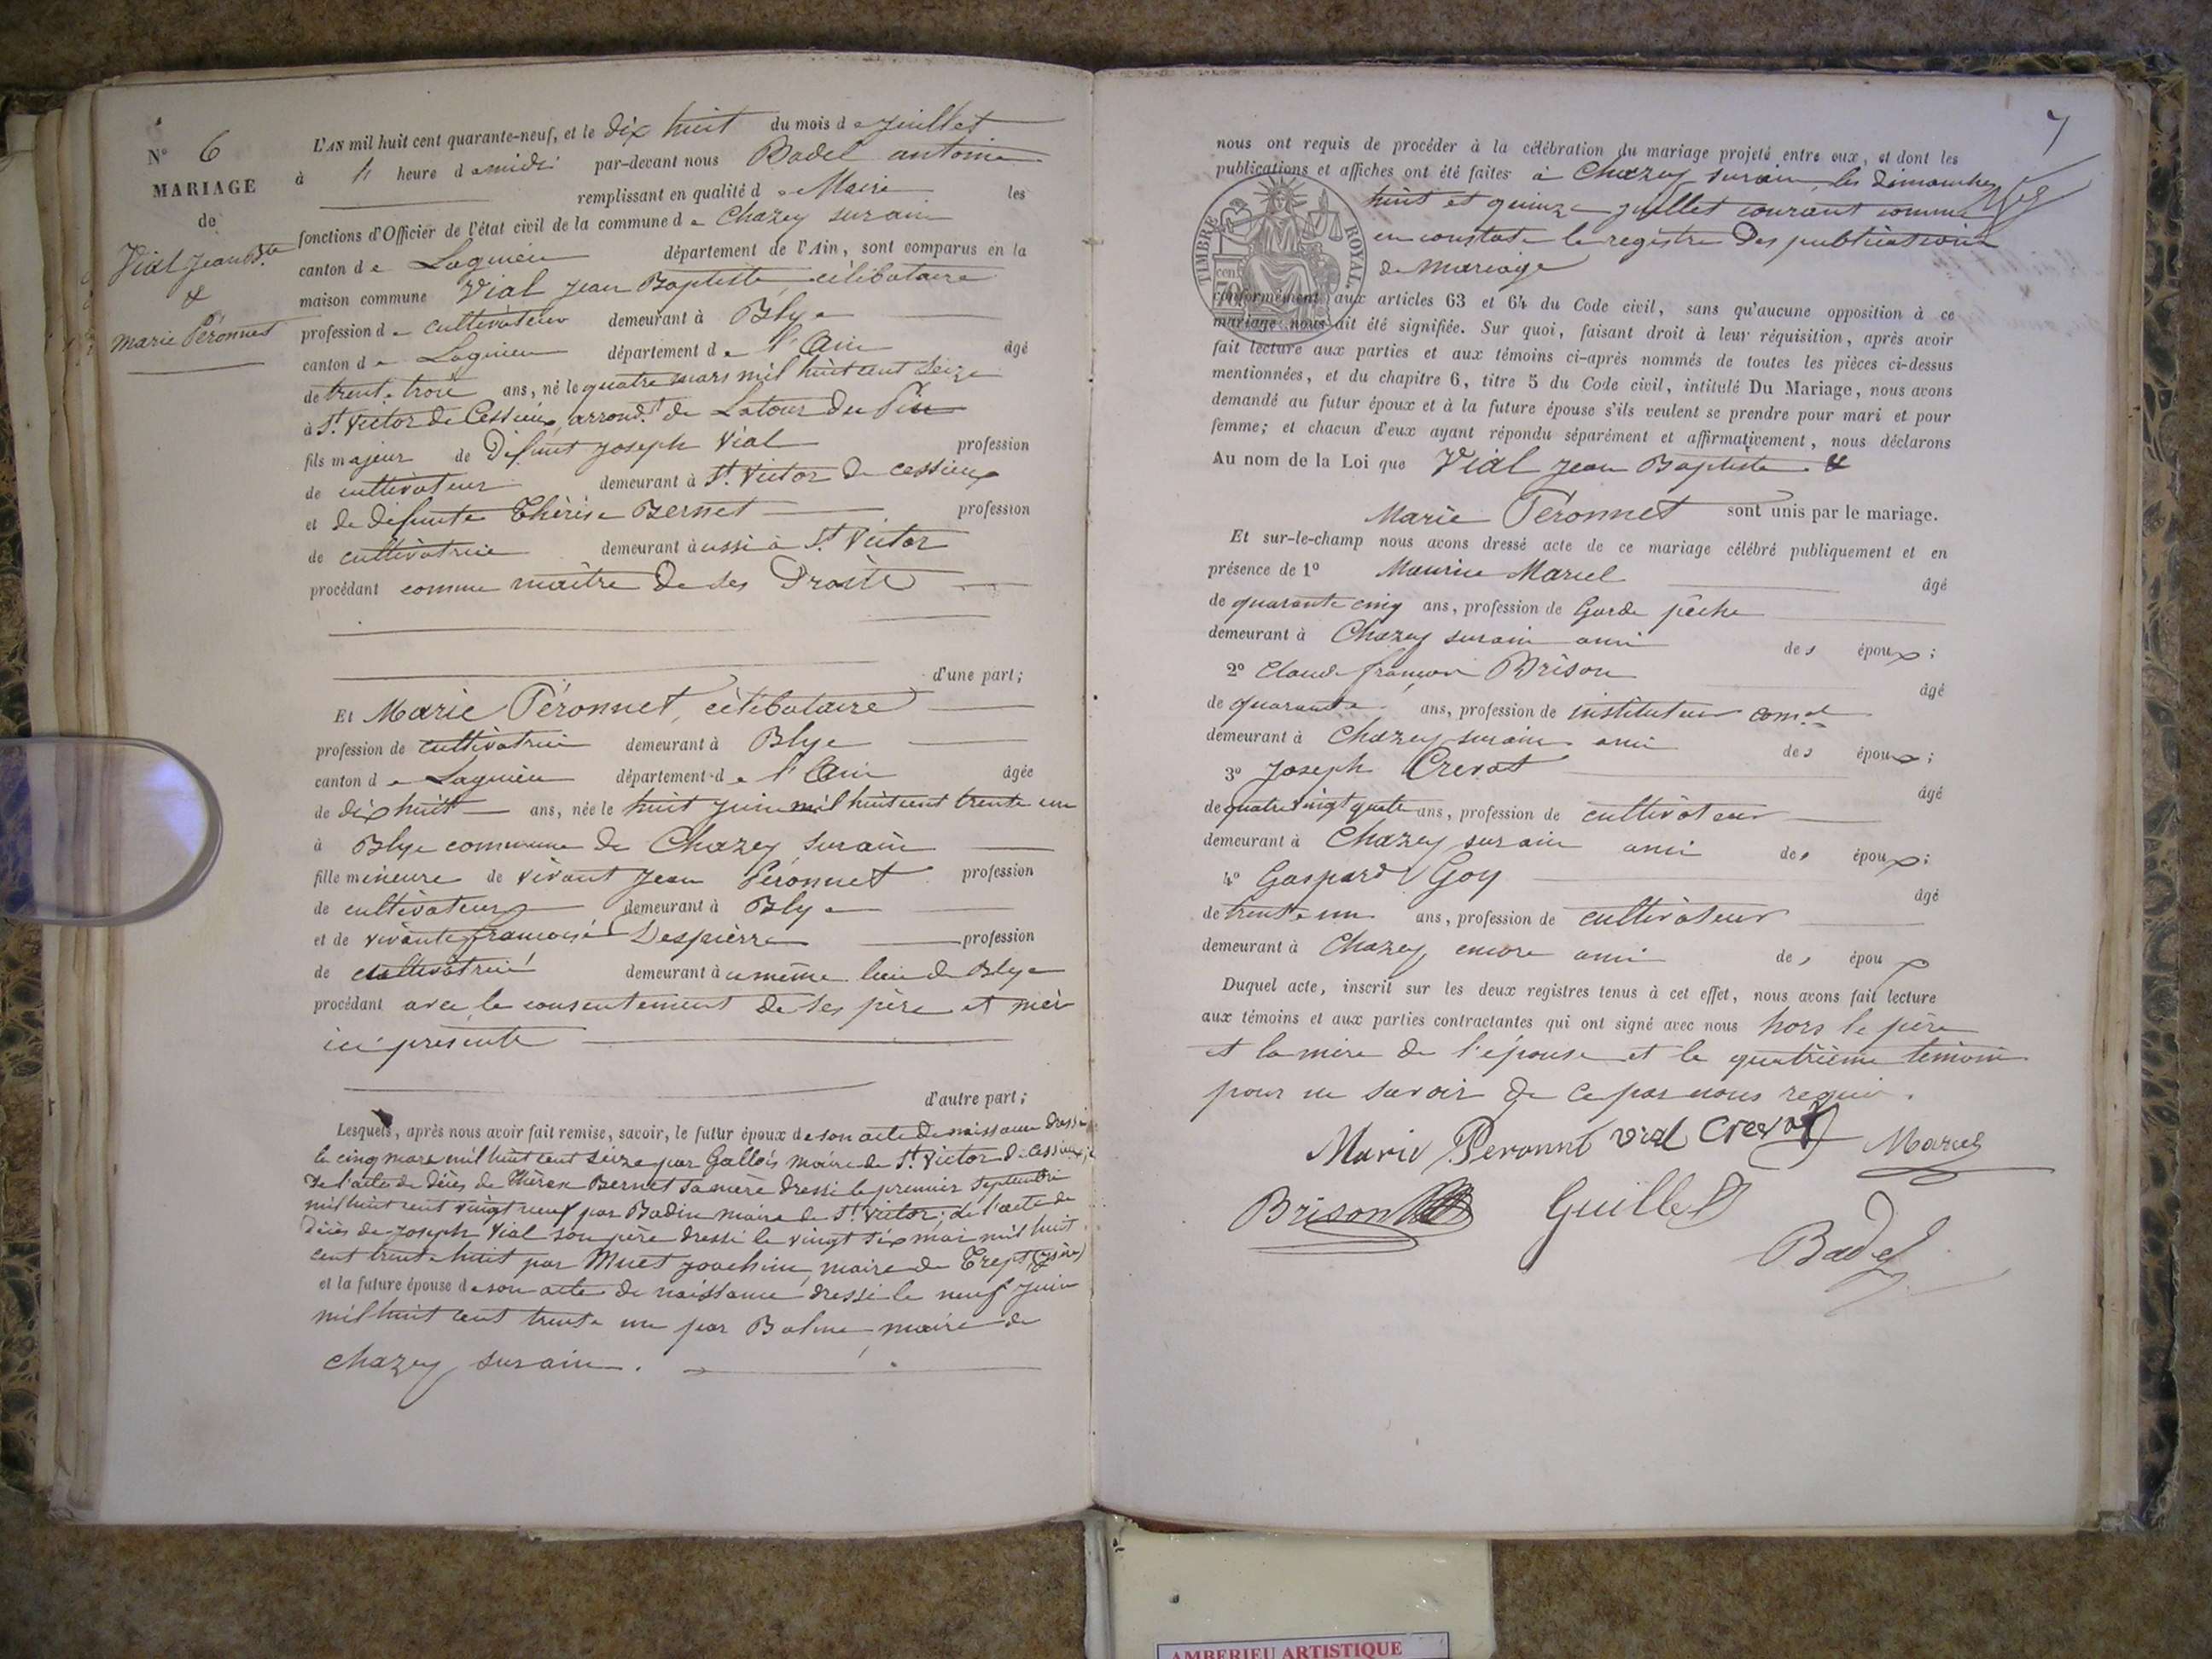 N° 6
MARIAGE
de
Vial Jean Bte
&
Marie Péronnet
L'AN mil huit cent quarante-neuf, et le dix huit du mois de juillet
à heure de midi par-devant nous Badel antoine
remplissant en qualité de Maire les
fonctions d'Officier de l'état civil de la commune de Chazey sur ain
canton de Lagnieu département de l'Ain, sont comparus en la
maison commune Vial Jean Baptiste, célibataire
profession de cultivateur demeurant à Blye
canton de Lagnieu département de l'Ain âgé
de trente trois ans, né le quatre mars mil huit cent seize
à St. Victor de Cessieux, arrond.t de Latour du Pin
fils majeur de défunt Joseph Vial profession
de cultivateur demeurant à St. Victor de cessieux
et de défunte Thérèse Bernet profession
de cultivatrice demeurant aussi à St. Victor
procédant comme maître de ses Droits
d'une part;
Et Marie Péronnet, célibataire
profession de cultivatrice demeurant à Blye
canton de Lagnieu département de l'Ain âgée
de dix huit ans, née le huit juin mil huit cent trente un
à Blye commune de Chazey sur ain
fille mineure de vivant Jean Péronnet profession
de cultivateur demeurant à Blye
et de vivante françoise Despierre profession
de cultivatrice demeurant au même lieu de Blye
procédant avec le consentement de ses père et mère
ici présente
d'autre part;
Lesquels, après nous avoir fait remise, savoir, le futur époux de son acte de naissance dressé
le cinq mars mil huit cent seize par Gallois maire de St. Victor de Cessieux;
de l'acte de décès de Thérèse Bernet sa mère dressé le premier septembre
mil huit cent vingt neuf par Badin maire de St. Victor; de l'acte de
décès de Joseph Vial son père dressé le vingt six mai mil huit
cent trente huit par Muet Joachim, maire de Trept (Isère)
et la future épouse de son acte de naissance dressé le neuf juin
mil huit cent trente un par Balme, maire de
chazey sur ain.
7
nous ont requis de procéder à la célébration du mariage projeté entre eux, et dont les
publications et affiches ont été faites à Chazey sur ain, les dimanches
huit et quinze juillet courant comme
en constate le registre des publications
de mariage
TIMBRE ROYAL
conformément aux articles 63 et 64 du Code civil, sans qu'aucune opposition à ce
mariage nous ait été signifiée. Sur quoi, faisant droit à leur réquisition, après avoir
fait lecture aux parties et aux témoins ci-après nommés de toutes les pièces ci-dessus
mentionnées, et du chapitre 6, titre 5 du Code civil, intitulé Du Mariage, nous avons
demandé au futur époux et à la future épouse s'ils veulent se prendre pour mari et pour
femme; et chacun d'eux ayant répondu séparément et affirmativement, nous déclarons
Au nom de la Loi que Vial Jean Baptiste &
Marie Péronnet sont unis par le mariage.
Et sur-le-champ nous avons dressé acte de ce mariage célébré publiquement et en
présence de 1° Maurice Marcel âgé
de quarante cinq ans, profession de Garde pêche
demeurant à Chazey sur ain ami des époux;
2° Claude françois Brison âgé
de quarante ans, profession de instituteur com.al
demeurant à Chazey sur ain ami des époux;
3° Joseph Crevat âgé
de quatre vingt quatre ans, profession de cultivateur
demeurant à Chazey sur ain ami des époux;
4° Gaspard Goy âgé
de trente un ans, profession de cultivateur
demeurant à Chazey, encore ami des époux
Duquel acte, inscrit sur les deux registres tenus à cet effet, nous avons fait lecture
aux témoins et aux parties contractantes qui ont signé avec nous hors le père
et la mère de l'épouse et le quatrième témoin
pour ne savoir de ce par nous requis.
Marie Peronnt Vial Crevat Marcel
Brison Guillet
Badel
AMBERIEU ARTISTIQUE